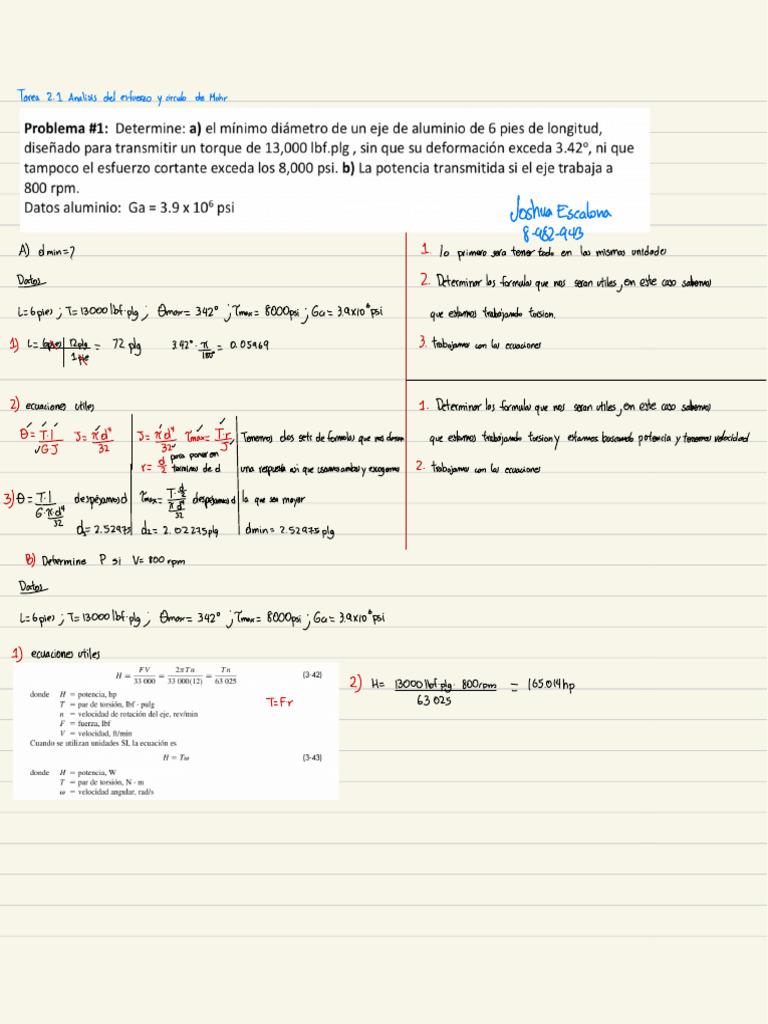 Tarea 2.1 Analisis del esfuerzo y circulo de Mohr
Problema #1: Determine: a) el mínimo diámetro de un eje de aluminio de 6 pies de longitud,
diseñado para transmitir un torque de 13,000 lbf.plg , sin que su deformación exceda 3.42º, ni que
tampoco el esfuerzo cortante exceda los 8,000 psi. b) La potencia transmitida si el eje trabaja a
800 rpm.
Datos aluminio: Ga = 3.9 x 10⁶ psi
Joshua Escalona
8-982-943
A) dmin=?
Datos
L=6pies ; T=13000 lbf·plg ; θmax= 3.42° ; τmax= 8000psi ; Ga= 3.9x10⁶psi
1) L= 6pies | 12plg / 1pie = 72 plg 3.42° · π/180° = 0.05969
2) ecuaciones utiles
θ = T·l / GJ J= πd⁴/32 J= πd⁴/32 τmax= T·r/J Tenemos dos sets de formulas que nos daran
r= d/2 para poner en terminos de d una respuesta asi que usamos ambas y escogemos
3) θ = T·l / G·π·d⁴/32 despejamos d τmax= T·d/2 / πd⁴/32 despejamos d la que sea mayor
d₁= 2.52975 d₂= 2.02275plg dmin = 2.52975plg
1. lo primero sera tener todo en las mismas unidades
2. Determinar las formulas que nos seran utiles, en este caso sabemos
que estamos trabajando torsion.
3. trabajamos con las ecuaciones
1. Determinar las formulas que nos seran utiles, en este caso sabemos
que estamos trabajando torsion y estamos buscando potencia y tenemos velocidad
2. trabajamos con las ecuaciones
B) Determine P si V= 800rpm
Datos
L=6pies ; T=13000 lbf·plg ; θmax= 3.42° ; τmax= 8000psi ; Ga= 3.9x10⁶psi
1) ecuaciones utiles
H = FV / 33 000 = 2πTn / 33 000(12) = Tn / 63 025 (3-42)
donde H = potencia, hp
T = par de torsión, lbf · pulg
n = velocidad de rotación del eje, rev/min
F = fuerza, lbf
V = velocidad, ft/min
Cuando se utilizan unidades SI, la ecuación es
H = Tω (3-43)
donde H = potencia, W
T = par de torsión, N · m
ω = velocidad angular, rad/s
T=Fr
2) H= 13000 lbf·plg · 800rpm / 63025 = 165.014hp